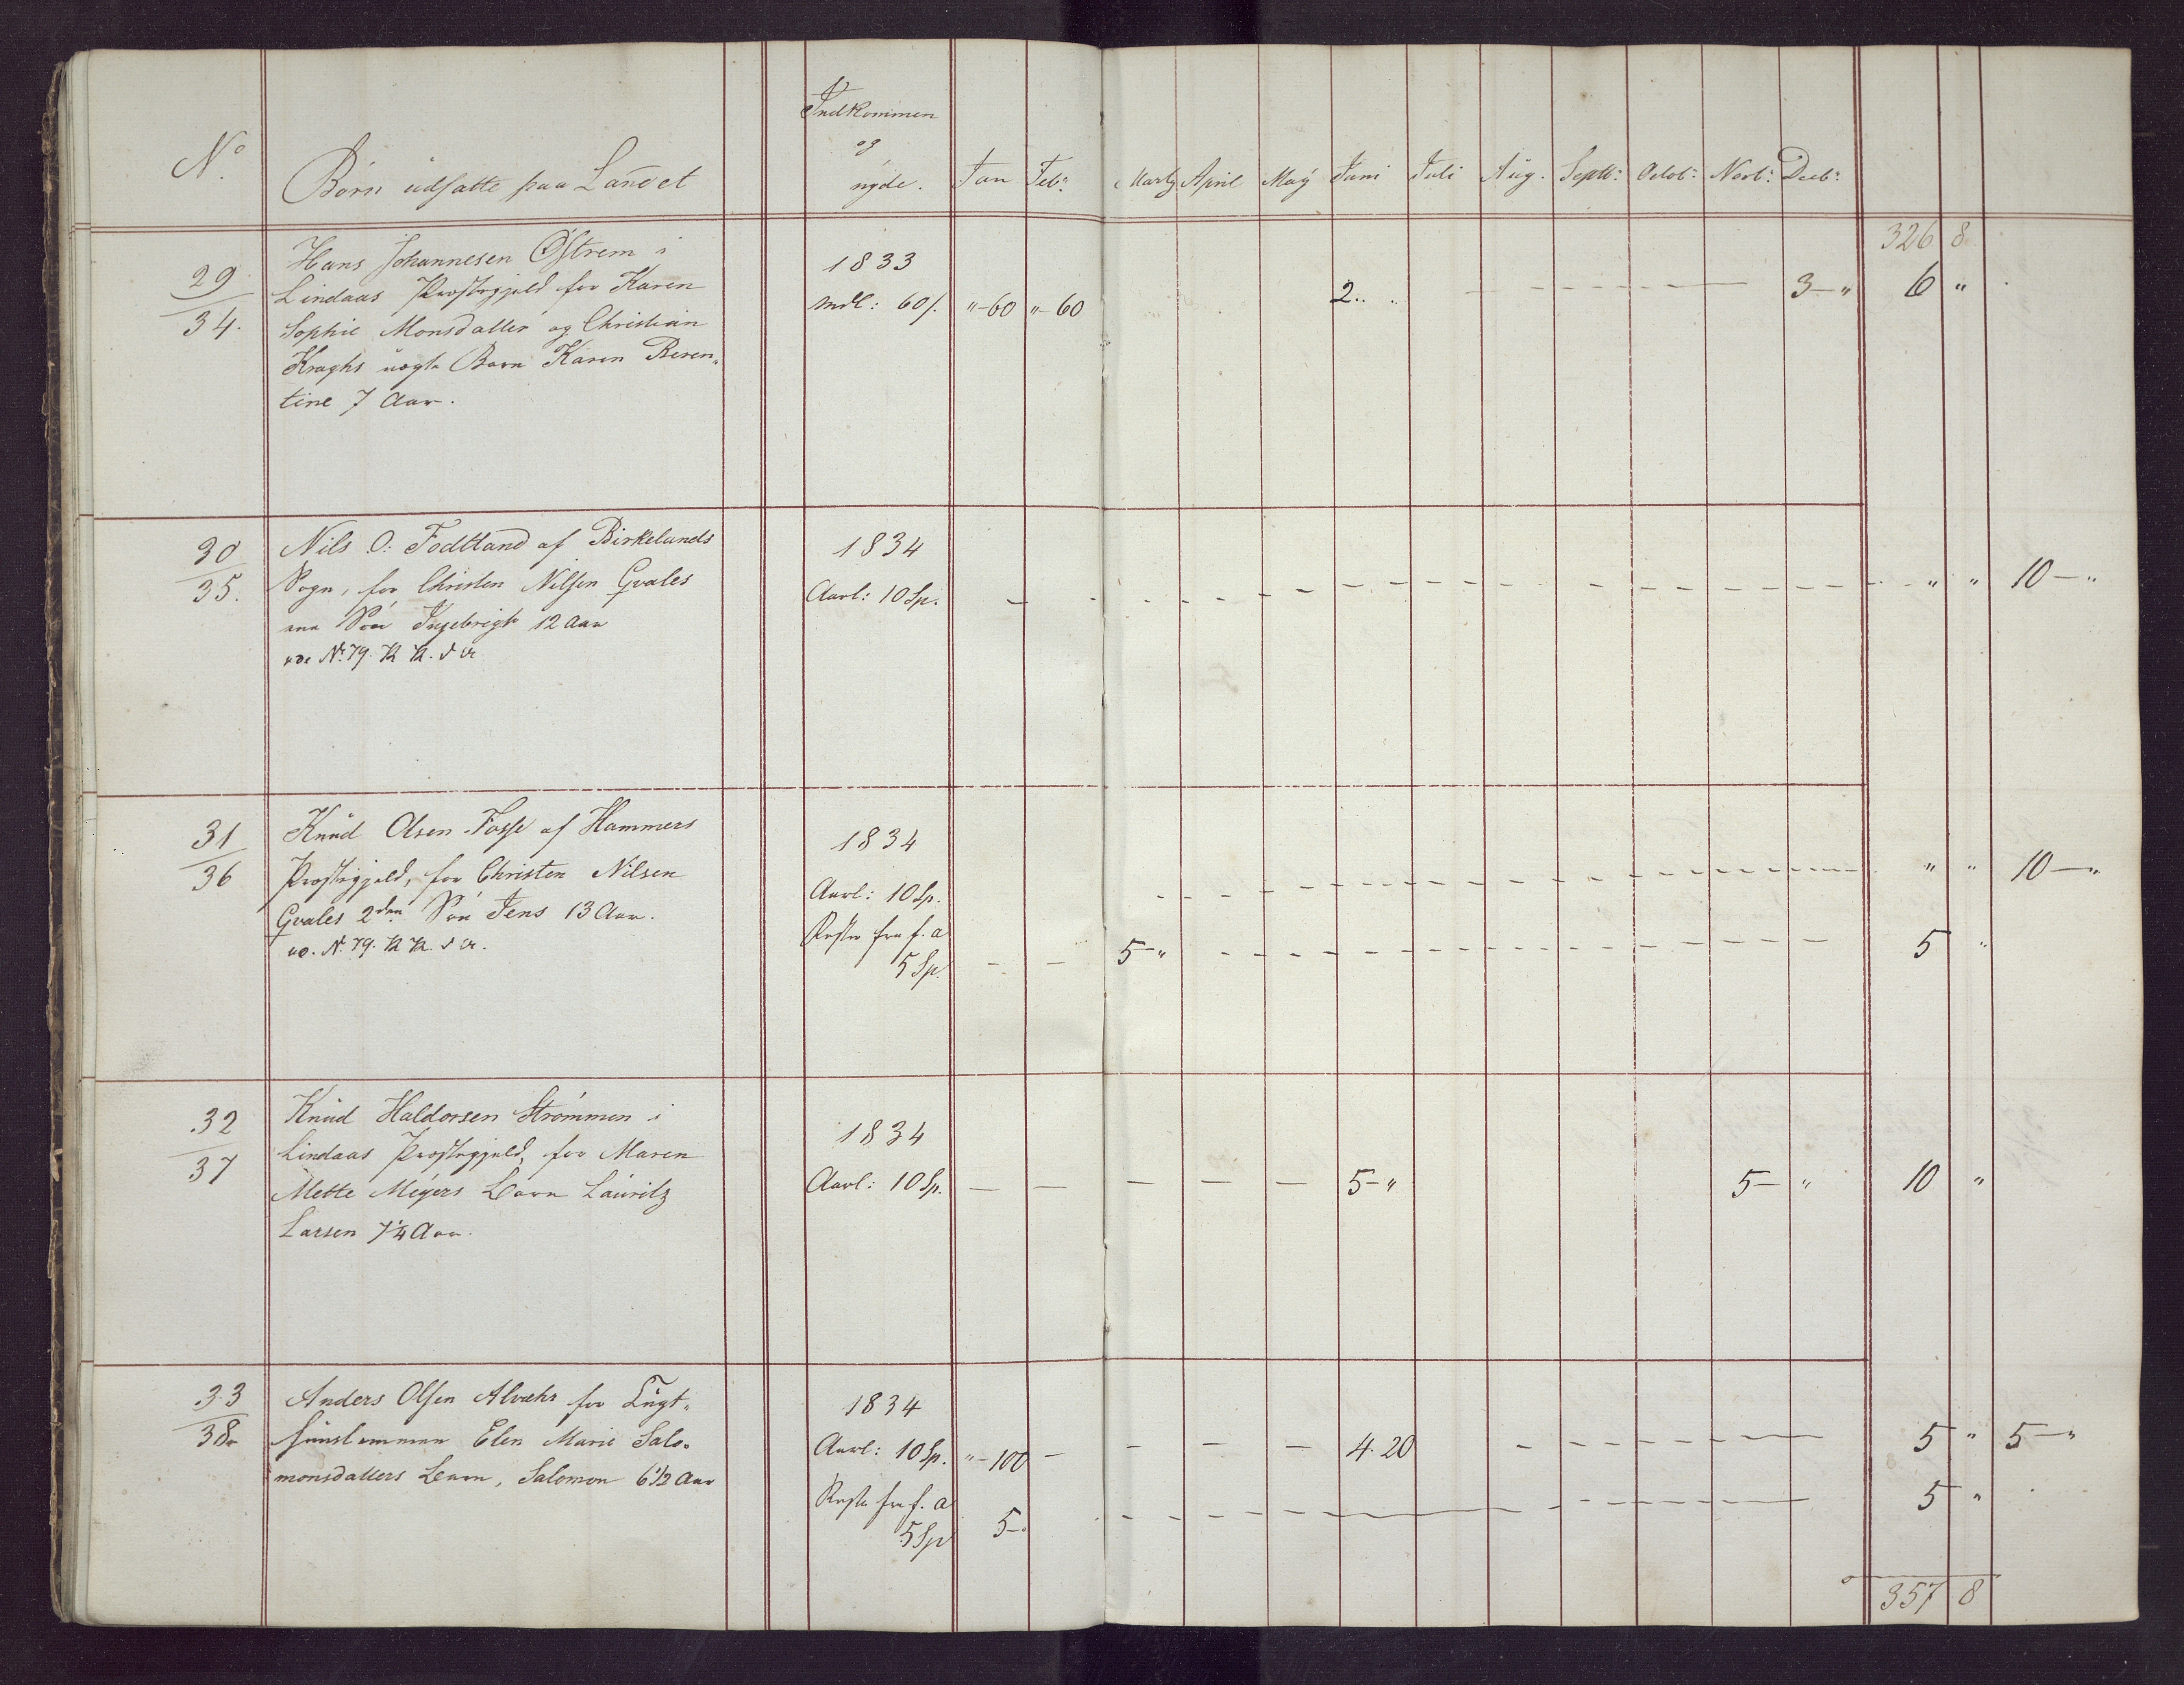 Indkommen
og
nyde.
No
Børn udsatte paa Landet
Jan Febr: Martz April May Juni Juli Aug. Septb: Octob: Novb: Decb:
326 8
29
34.
Hans Johannesen Østrem i
Lindaas Præstegjeld for Karen
Sophie Monsdatter og Christian
Kraghs uægte Barn Karen Beren„
tine 7 Aar.
1833
Mdl: 60 s. „-60 „-60 2.. 3-„ 6 „
30
35.
Nils O: Fodttand af Birkelands
Sogn, for Christen Nilsen Gvales
Søn Ingebrigt 12 Aar
No. 79.
1834
Aarl: 10 Sp. „ „ 10-„
31
36
Knud Olsen Fosse af Hammers
Præstegjeld, for Christen Nilsen
Gvales 2den Søn Jens 13 Aar.
No. 79.
1834
Aarl: 10 Sp. „ „ 10-„
Rester fra f. a
5 Sp. 5-„ 5 „
32
37
Knud Haldorsen Strømmen i
Lindaas Præstegjeld, for Maren
Mette Meyers Barn Lauritz
Larsen 7 1/4 Aar.
1834
Aarl: 10 Sp. 5-„ 5-„ 10 „
33
38
Anders Olsen Alvehr for Tugt„
huuslemmen Elen Marie Salo„
monsdatters Barn, Salomon 6 1/2 Aar
1834
Aarl: 10 Sp. „-100 4. 20 5 „ 5-„
Reste fra f. a
5 Sp 5-„ 5 „
357 8